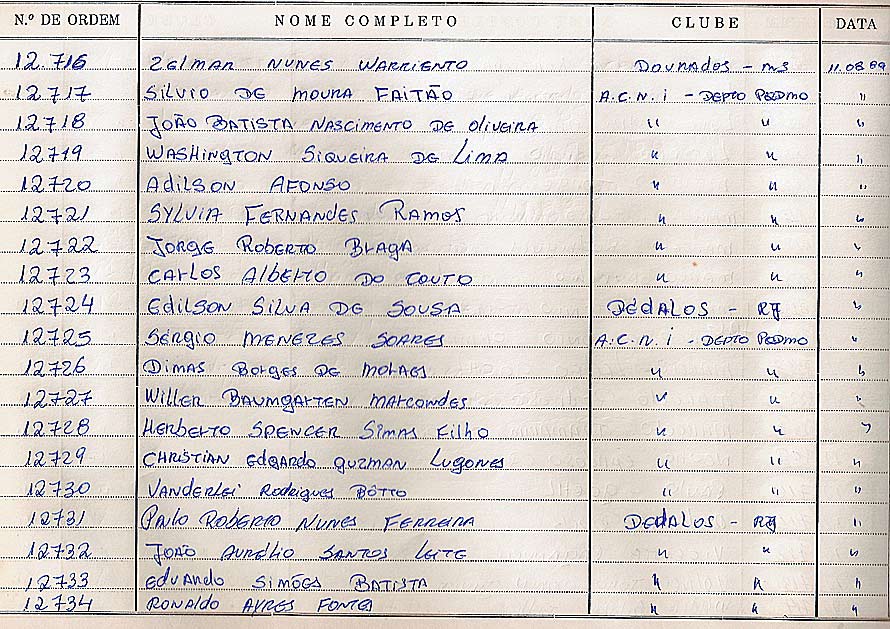 N.º DE ORDEM NOME COMPLETO CLUBE DATA
12.716 ZELMAR NUNES WARRIENTO DOURADOS - MS 11.08.89
12717 SILVIO DE MOURA FAITÃO A.C.N.I - DEPTO PEDMO "
12718 JOÃO BATISTA NASCIMENTO DE OLIVEIRA " " "
12719 WASHINGTON SIQUEIRA DE LIMA " " "
12720 ADILSON AFONSO " " "
12721 SYLVIA FERNANDES RAMOS " " "
12722 JORGE ROBERTO BRAGA " " "
12723 CARLOS ALBERTO DO COUTO " " "
12724 EDILSON SILVA DE SOUSA DÉDALOS - RJ "
12725 SÉRGIO MENEZES SOARES A.C.N.I - DEPTO PEDMO "
12726 DIMAS BORGES DE MORAES " " "
12727 WILLER BAUMGARTEN MARCONDES " " "
12728 HERBERTO SPENCER SIMAS FILHO " " "
12729 CHRISTIAN EDGARDO GUZMAN LUGONES " " "
12730 VANDERLEI RODRIGUES BÔTTO " " "
12731 PAULO ROBERTO NUNES FERREIRA DEDALOS - RJ "
12732 JOÃO AURELIO SANTOS LEITE " " "
12733 EDUARDO SIMÕES BATISTA " " "
12734 RONALDO AYRES FONTES " " "